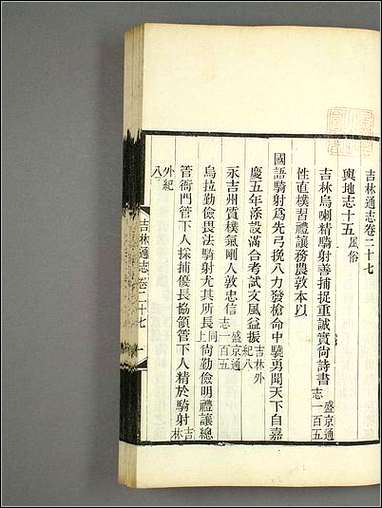 吉林通志卷二十七
輿地志十五風俗
吉林烏喇精騎射善捕捉重誠實尚詩書盛京通志一百五
性直樸習禮讓務農敦本以
國語騎射爲先弓挽八力發槍命中驍勇聞天下自嘉
慶五年添設滿合考試文風益振吉林外紀八
永吉州質樸氣剛人敦忠信盛京通志一百五
烏拉勤儉畏法騎射尤其所長同上尚勤儉明禮讓總
管衙門管下人採捕優長協領管下人精於騎射吉林
外紀八
吉林通志 卷二十七 一